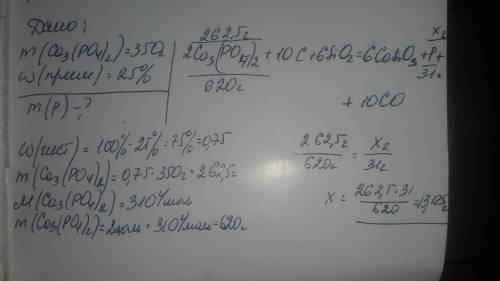 Дано:
m(Ca3(PO4)2)=350г
w(прим)=25%
m(P)-?
262,5г
x г
2Ca3(PO4)2 + 10C + 6SiO2 = 6CaSiO3 + P4 +
620г
31г
+ 10CO
w(чист) = 100% - 25% = 75% = 0,75
m(Ca3(PO4)2) = 0,75 · 350г = 262,5г
M(Ca3(PO4)2) = 310г/моль
m(Ca3(PO4)2) = 2моль · 310г/моль = 620г
262,5г / 620г = xг / 31г
x = 262,5 · 31 / 620 = 13,125г